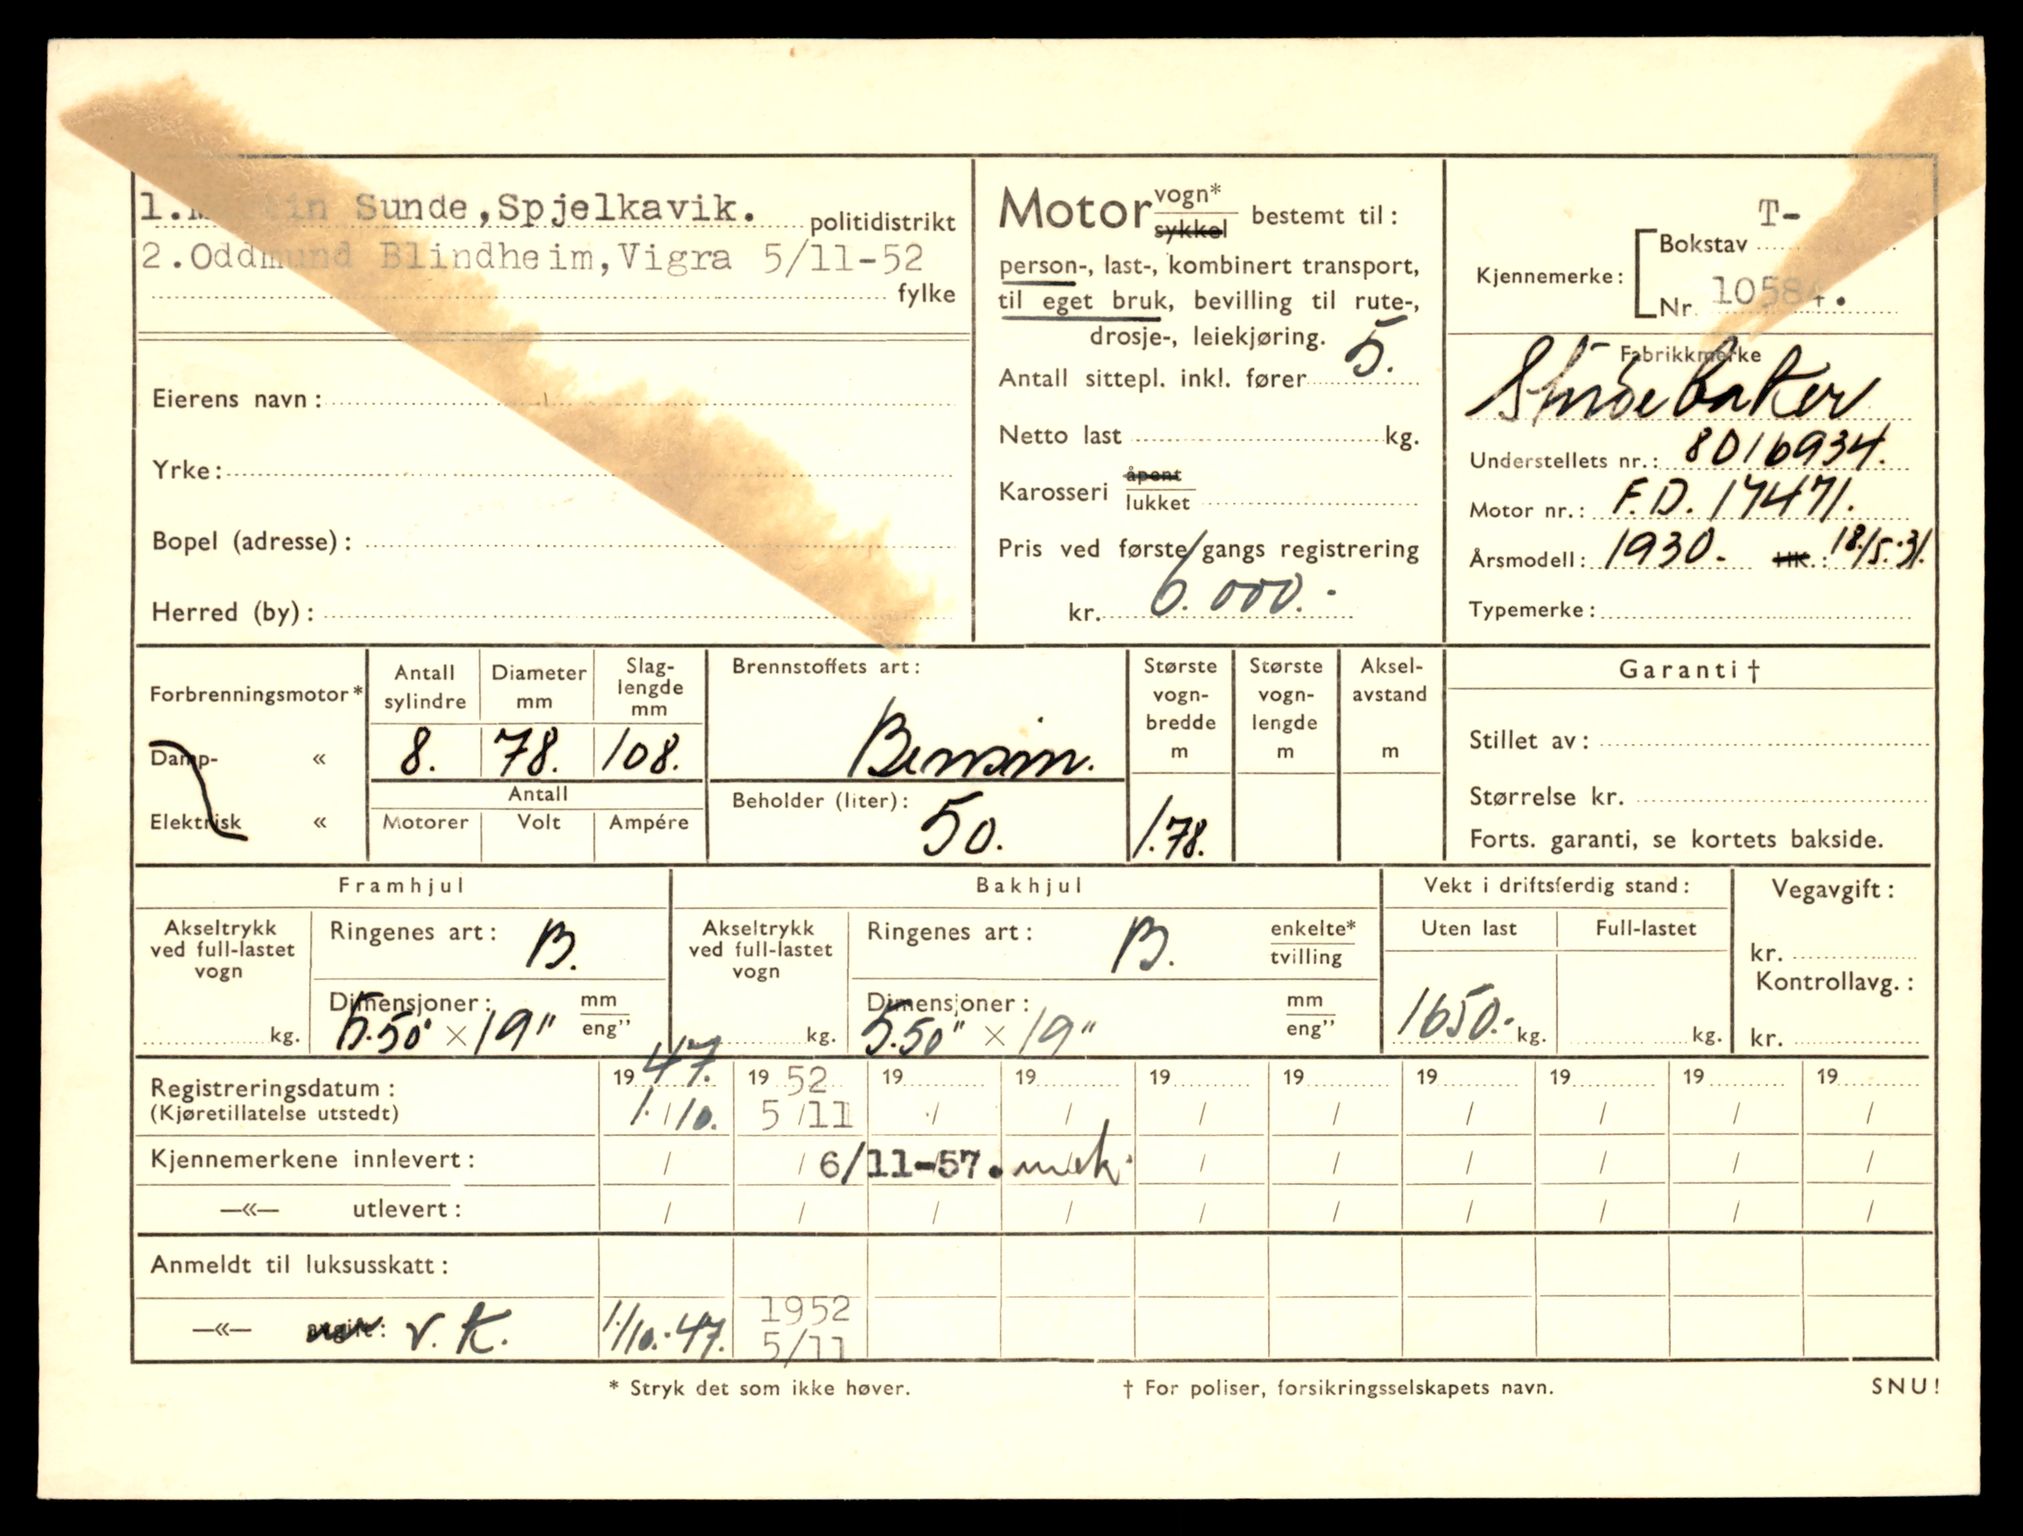 1. Martin Sunde, Spjelkavik. politidistrikt
2. Oddmund Blindheim, Vigra 5/11-52
fylke
Eierens navn:
Yrke:
Bopel (adresse):
Herred (by):
Motor vogn* / sykkel bestemt til:
person-, last-, kombinert transport,
til eget bruk, bevilling til rute-,
drosje-, leiekjøring.
Antall sittepl. inkl. fører 5.
Netto last kg.
Karosseri åpent / lukket
Pris ved første gangs registrering
kr. 6.000.-
Kjennemerke: Bokstav T-
Nr. 10584.
Fabrikkmerke
Studebaker
Understellets nr.: 8016934.
Motor nr.: F.D. 17471.
Årsmodell: 1930.- HK.: 18/5.31.
Typemerke:
Forbrenningsmotor*
Damp- «
Elektrisk «
Antall sylindre 8.
Diameter mm 78.
Slaglengde mm 108.
Antall
Motorer Volt Ampére
Brennstoffets art:
Bensin.
Beholder (liter): 50.
Største vogn-bredde m 1.78.
Største vogn-lengde m
Aksel-avstand m
Garanti †
Stillet av:
Størrelse kr.
Forts. garanti, se kortets bakside.
Framhjul
Akseltrykk ved full-lastet vogn kg.
Ringenes art: B.
Dimensjoner: 5.50" × 19" mm / eng"
Bakhjul
Akseltrykk ved full-lastet vogn kg.
Ringenes art: B. enkelte* / tvilling
Dimensjoner: 5.50" × 19" mm / eng"
Vekt i driftsferdig stand:
Uten last 1650.- kg.
Full-lastet kg.
Vegavgift:
kr.
Kontrollavg.:
kr.
Registreringsdatum: 19 47. 19 52 19 19 19 19 19 19 19 19
(Kjøretillatelse utstedt) 1./10. 5/11 / / / / / / / /
Kjennemerkene innlevert: / / 6/11-57. mek. / / / / / /
—«— utlevert: / / / / / / / / / /
Anmeldt til luksusskatt:
—«— avgift: v.k. 1/10.-47. 1952 5/11
* Stryk det som ikke høver.
† For poliser, forsikringsselskapets navn.
SNU!